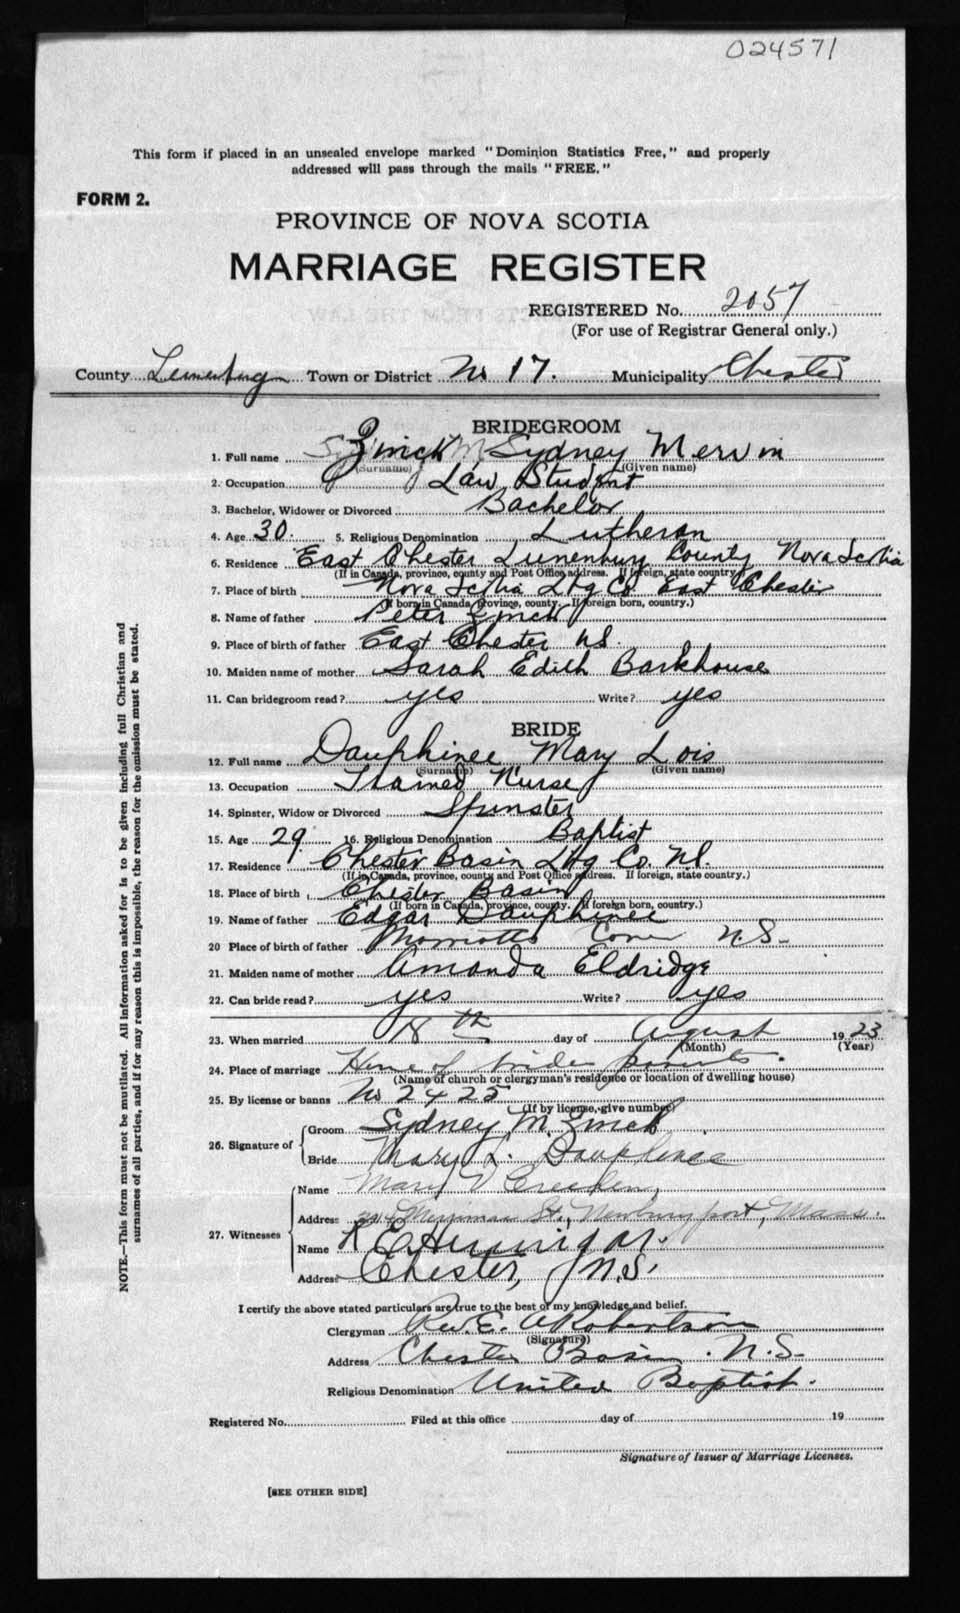 024571
This form if placed in an unsealed envelope marked "Dominion Statistics Free," and properly
addressed will pass through the mails "FREE."
FORM 2.
PROVINCE OF NOVA SCOTIA
MARRIAGE REGISTER
REGISTERED No. 2057
(For use of Registrar General only.)
County Lunenburg Town or District No 17. Municipality Chester
BRIDEGROOM
1. Full name Zinck Sydney Mervin
(Surname) (Given name)
2. Occupation Law Student
3. Bachelor, Widower or Divorced Bachelor
4. Age 30. 5. Religious Denomination Lutheran
6. Residence East Chester Lunenburg County Nova Scotia
(If in Canada, province, county and Post Office address. If foreign, state country.)
7. Place of birth Nova Scotia Lbg Co East Chester
(If born in Canada, province, county. If foreign born, country.)
8. Name of father Peter Zinck
9. Place of birth of father East Chester N.S.
10. Maiden name of mother Sarah Edith Barkhouse
11. Can bridegroom read? yes Write? yes
BRIDE
12. Full name Dauphinee Mary Lois
(Surname) (Given name)
13. Occupation Trained Nurse
14. Spinster, Widow or Divorced Spinster
15. Age 29 16. Religious Denomination Baptist
17. Residence Chester Basin Lbg Co. N.S.
(If in Canada, province, county and Post Office address. If foreign, state country.)
18. Place of birth Chester Basin
(If born in Canada, province, county. If foreign born, country.)
19. Name of father Edgar Dauphinee
20 Place of birth of father Marriotts Cove N.S.
21. Maiden name of mother Amanda Eldridge
22. Can bride read? yes Write? yes
23. When married 18th day of August 1923
(Month) (Year)
24. Place of marriage Home of brides parents.
(Name of church or clergyman's residence or location of dwelling house)
25. By license or banns No 2425
(If by license, give number)
26. Signature of
Groom Sydney M. Zinck
Bride Mary L. Dauphinee
27. Witnesses
Name Mary
Address Merrimac St., Newburyport, Mass.
Name R E Hennigar.
Address Chester, N.S.
I certify the above stated particulars are true to the best of my knowledge and belief.
Clergyman Rev. E. A Robertson
(Signature)
Address Chester Basin. N.S.
Religious Denomination United Baptist.
Registered No. Filed at this office day of 19
Signature of Issuer of Marriage Licenses.
[SEE OTHER SIDE]
NOTE.—This form must not be mutilated. All information asked for is to be given including full Christian and
surnames of all parties, and if for any reason this is impossible, the reason for the omission must be stated.